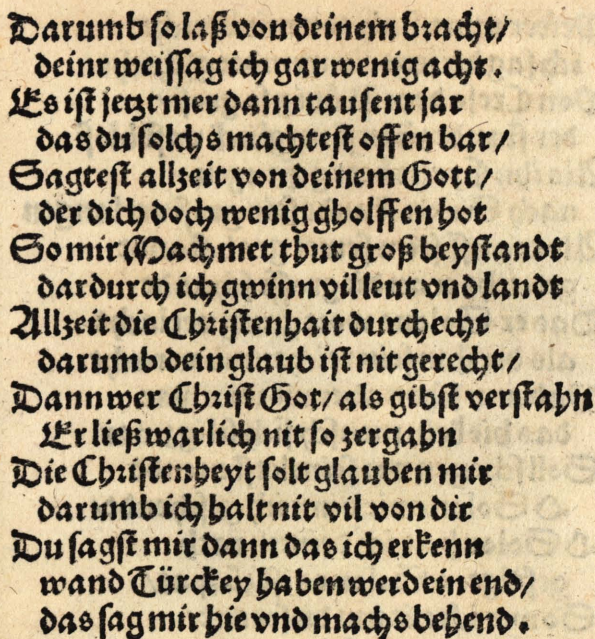 Darumb so laß von deinem bracht/
deinr weissag ich gar wenig acht.
Es ist jetzt mer dann tausent jar
das du solchs machtest offen bar/
Sagtest allzeit von deinem Gott/
der dich doch wenig gholffen hot
So mir Machmet thut groß beystandt
dardurch ich gwinn vil leut vnd landt
Allzeit die Christenhait durchecht
darumb dein glaub ist nit gerecht/
Dann wer Christ Got/ als gibst verstahn
Er ließ warlich nit so zergahn
Die Christenheyt solt glauben mir
darumb ich halt nit vil von dir
Du sagst mir dann das ich erkenn
wand Türckey haben werd ein end/
das sag mir hie vnd machs behend.